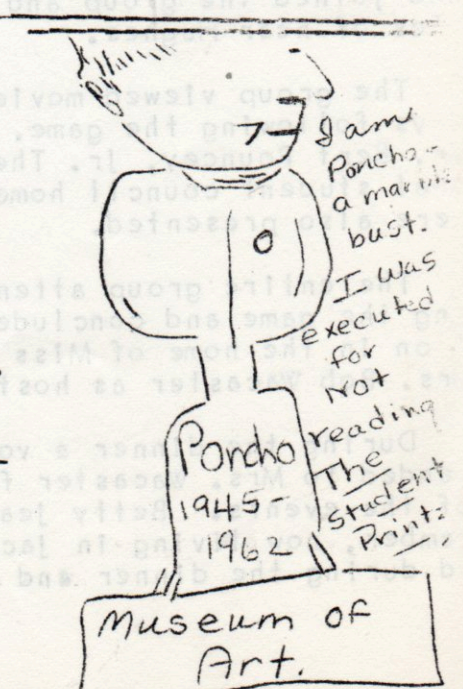 I am
Poncho -
a marble
bust.
I was
executed
for
Not
reading
The
Student
Print.
Poncho
1945-
1962
Museum of
Art.